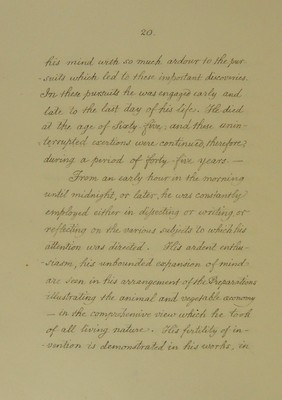 20.
his mind with so much ardour to the pur-
-suits which led to these important discoveries.
In these pursuits he was engaged early and
late to the last day of his life. He died
at the age of Sixty-five, and these unin-
terrupted exertions were continued, therefore,
during a period of forty-five years. —
From an early hour in the morning
until midnight, or later, he was constantly
employed either in dissecting or writing, or
reflecting on the various subjects to which his
attention was directed. His ardent enthu-
-siasm, his unbounded expansion of mind
are seen in his arrangement of the Preparations
illustrating the animal and vegetable economy
— in the comprehensive view which he took
of all living nature. His fertility of in-
-vention is demonstrated in his works, in